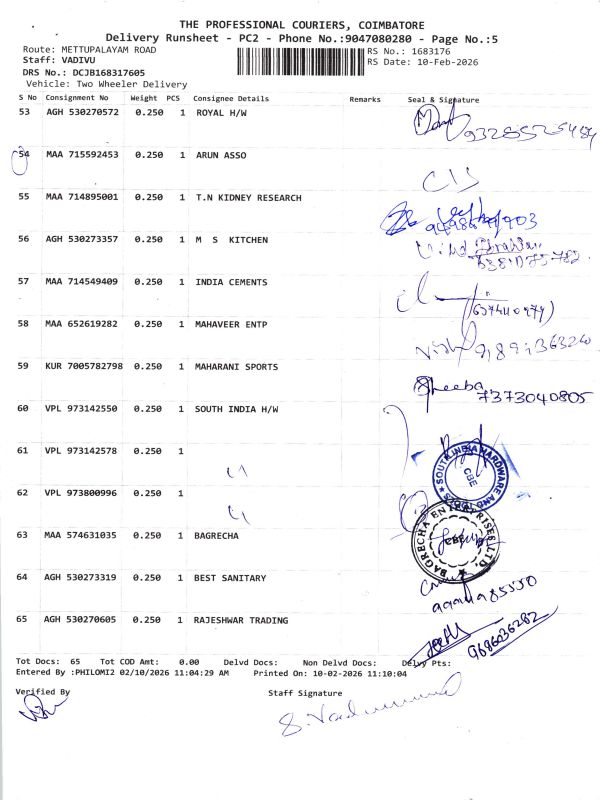 THE PROFESSIONAL COURIERS, COIMBATORE
Delivery Runsheet - PC2 - Phone No.:9047080280 - Page No.:5
Route: METTUPALAYAM ROAD
RS No.: 1683176
Staff: VADIVU
RS Date: 10-Feb-2026
DRS No.: DCJB168317605
Vehicle: Two Wheeler Delivery
S No Consignment No Weight PCS Consignee Details Remarks Seal & Signature
53 AGH 530270572 0.250 1 ROYAL H/W
54 MAA 715592453 0.250 1 ARUN ASSO
55 MAA 714895001 0.250 1 T.N KIDNEY RESEARCH
56 AGH 530273357 0.250 1 M S KITCHEN
57 MAA 714549409 0.250 1 INDIA CEMENTS
58 MAA 652619282 0.250 1 MAHAVEER ENTP
59 KUR 7005782798 0.250 1 MAHARANI SPORTS
Sheeba
7373040805
60 VPL 973142550 0.250 1 SOUTH INDIA H/W
61 VPL 973142578 0.250 1
SOUTH INDIA HARDWARE AND TOOLS
CBE
62 VPL 973800996 0.250 1
63 MAA 574631035 0.250 1 BAGRECHA
BAGRECHA ENTERPRISES LTD.
CBE
64 AGH 530273319 0.250 1 BEST SANITARY
65 AGH 530270605 0.250 1 RAJESHWAR TRADING
9686036282
Tot Docs: 65 Tot COD Amt: 0.00 Delvd Docs: Non Delvd Docs: Delvy Pts:
Entered By :PHILOMI2 02/10/2026 11:04:29 AM Printed On: 10-02-2026 11:10:04
Verified By Staff Signature
S. Vadivu